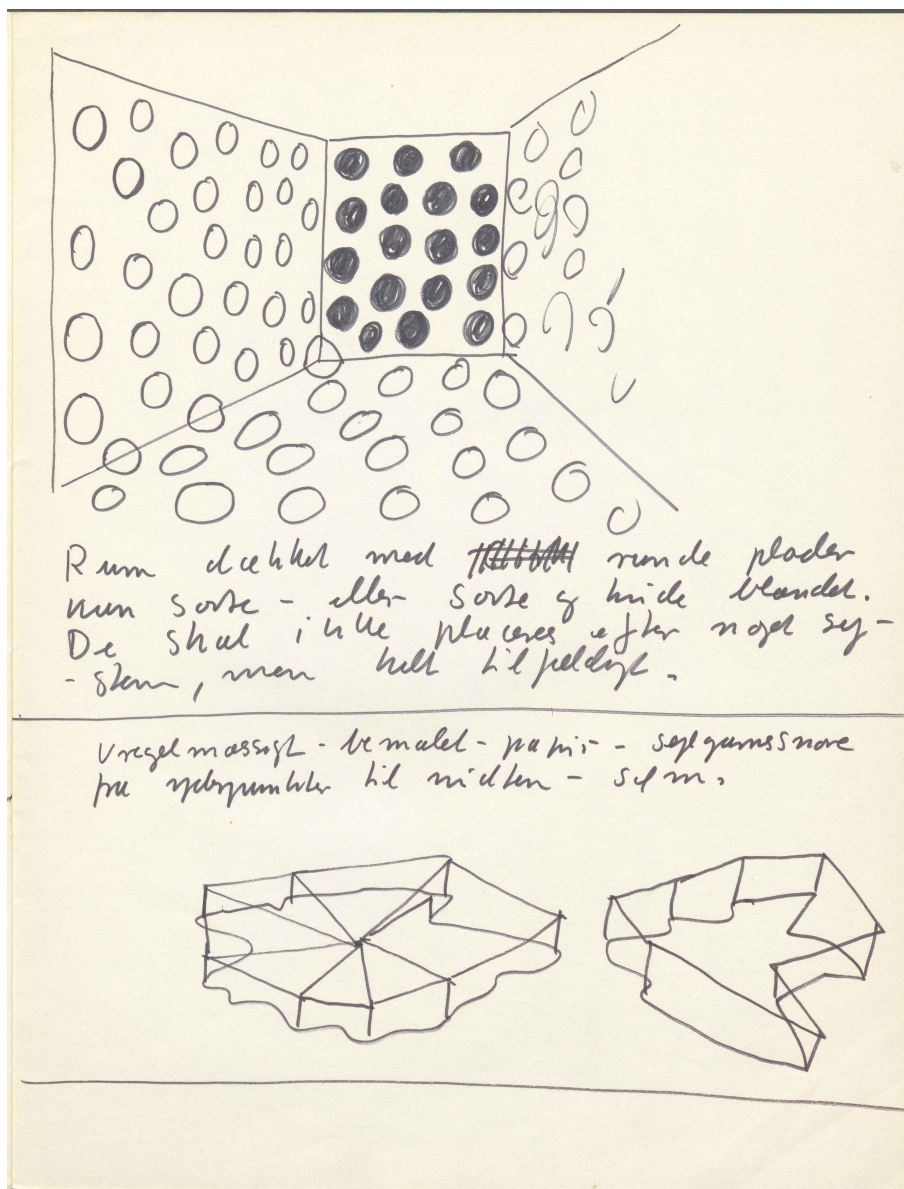 Rum dækket med runde plader
kun sorte - eller sorte og hvide blandet.
De skal ikke placeres efter noget sy-
-stem, men helt tilfældigt.
Uregelmæssigt - bemalet - papir - sejlgarnssnore
fra yderpunkter til midten -